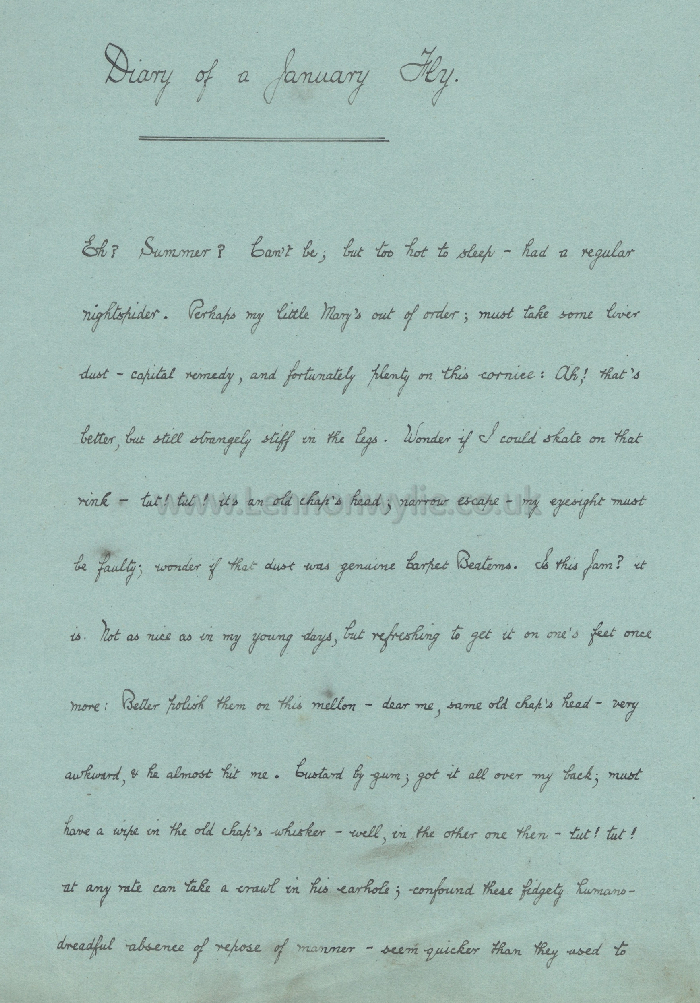 Diary of a January Fly.
Eh? Summer? Can't be; but too hot to sleep - had a regular
nightspider. Perhaps my little Mary's out of order; must take some liver
dust - capital remedy, and fortunately plenty on this cornice: Ah! that's
better, but still strangely stiff in the legs. Wonder if I could skate on that
rink - tut! tut! it's an old chap's head; narrow escape - my eyesight must
www.Lennonwylie.co.uk
be faulty; wonder if that dust was genuine Carpet Beatems. Is this Jam? it
is. Not as nice as in my young days, but refreshing to get it on one's feet once
more: Better polish them on this mellon - dear me, same old chap's head - very
awkward, & he almost hit me. Custard by gum; got it all over my back; must
have a wipe in the old chap's whisker - well, in the other one then - tut! tut!
at any rate can take a crawl in his earhole; confound these fidgety humans -
dreadful absence of repose of manner - seem quicker than they used to